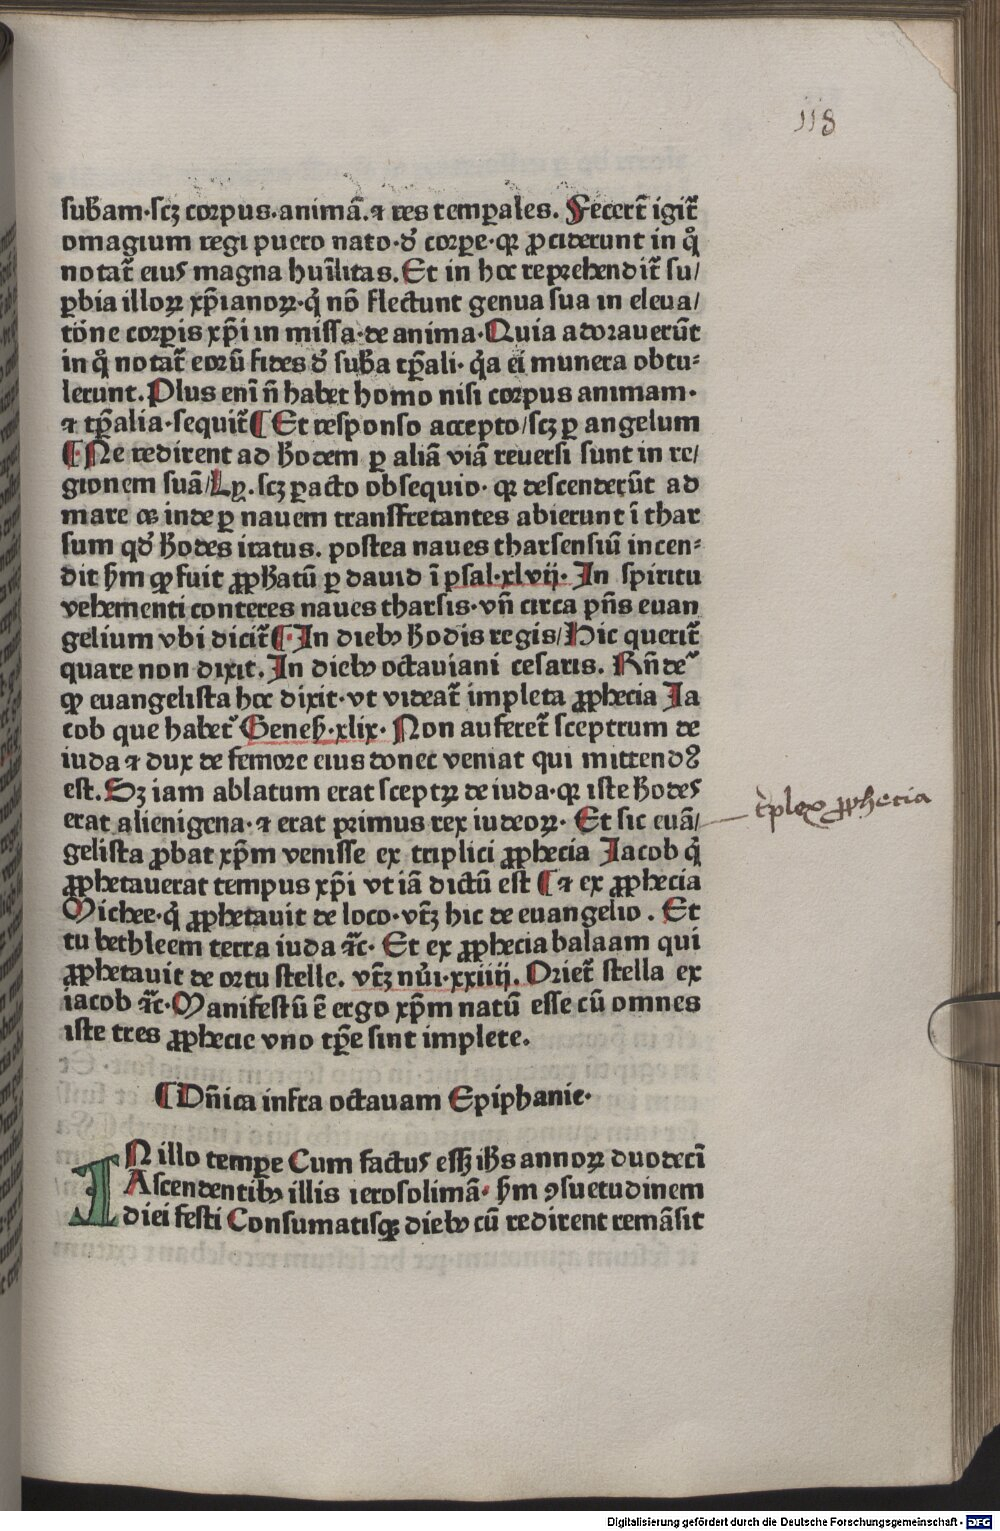 118
sub̄am·scꝫ corpus·animā.⁊ res temꝑales. Fecer̄t igit̄
omagium regi puero nato·ꝺ̄ corꝑe·qꝛ ꝓciderunt in qͦ
notat̄ eius magna hūilitas. Et in hoc reprehendit̄ su/
ꝑbia illoꝝ xp̄ianoꝝ·qͥ nō flectunt genua sua in eleua/
tōne corꝑis xp̄i in missa·de anima·Quia adorauerūt
in qͦ notat̄ eorū fides ꝺ̄ sub̄a tp̄ali·qͥa ei munera obtu⸗
lerunt. Plus enī n̄ habet homo nisi corpus animam·
⁊ tp̄alia·sequit̄ ¶ Et responso accepto/scꝫ ꝑ angelum
¶·Ne redirent ad Hodem ꝑ aliā viā reuersi sunt in re/
gionem suā/Lyͣ. scꝫ ꝑacto obsequio· qꝛ descenderūt ad
mare ⁊ inde ꝑ nauem transfretantes abierunt ī thar
sum qꝺ̄ Hodes iratus. postea naues tharsensiū incen⸗
dit hm̄ ꝙ fuit ꝓphatū ꝑ dauid ī psal·xlvij· In spiritu
vehementi conteres naues tharsis·vn̄ circa pn̄s euan
gelium vbi dicit̄ ¶·In diebꝰ Hodis regis/Hic querit̄
quare non dixit. In diebꝰ octauiani cesaris. Rn̄de͛
ꝙ euangelista hoc dixit·vt videat̄ impleta ꝓphecia Ja
cob que habet͛ Geneẜ·xlix· Non auferet̄ sceptrum de
iuda ⁊ dux de femore eius donec veniat qui mittendꝰ
est. Sꝫ iam ablatum erat sceptꝝ de iuda·qꝛ iste Hodes
erat alienigena·⁊ erat primus rex iudeoꝝ· Et sic euā/
gelista ꝓbat xp̄m venisse ex triplici ꝓphecia Jacob qͥ
ꝓphetauerat tempus xp̄i vt iā dictū est ¶ ⁊ ex ꝓphecia
Michee·qͥ ꝓphetauit de loco·vtꝫ hic de euangelio. Et
tu bethleem terra iuda ⁊c̄· Et ex ꝓphecia balaam qui
ꝓphetauit de ortu stelle. vtꝫ nūi·xxiiij. Oriet̄ stella ex
iacob ⁊c̄·Manifestū ē ergo xp̄m natū esse cū omnes
iste tres ꝓphecie vno tꝑe sint implete.
tͥplex ꝓphecia
¶ Dn̄ica infra octauam Epiphanie·
IN illo temꝑe Cum factus essꝫ ih̄s annoꝝ duodecī
Ascendentibꝰ illis ierosolimā· hm̄ ꝯsuetudinem
diei festi Consumatisqꝫ diebꝰ cū redirent remāsit
Digitalisierung gefördert durch die Deutsche Forschungsgemeinschaft - DFG